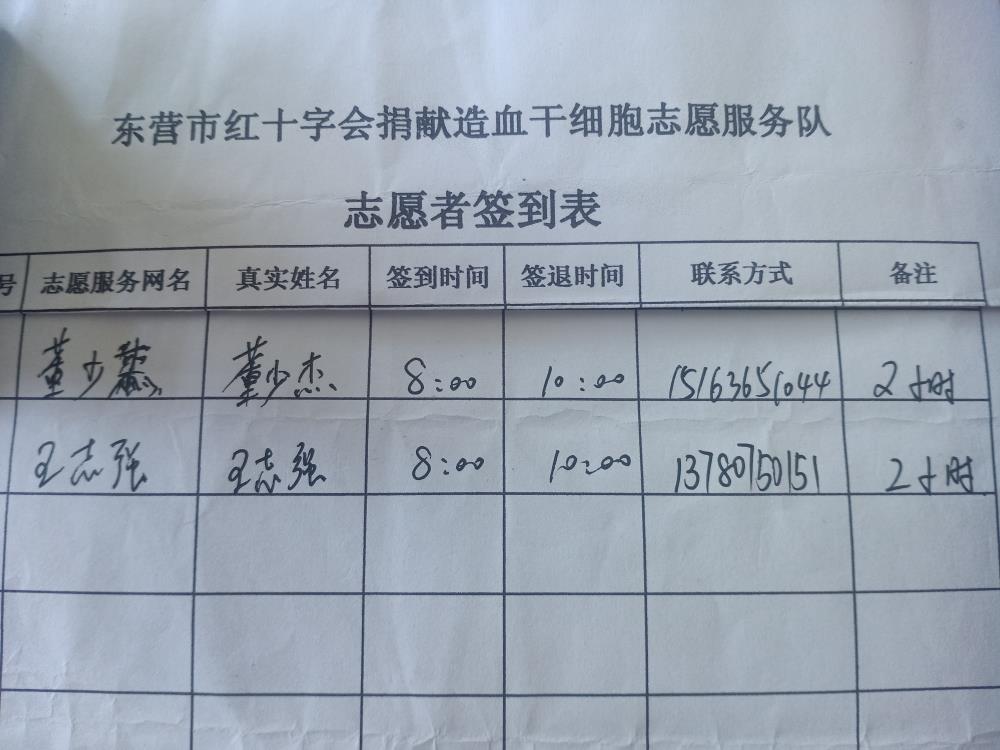 东营市红十字会捐献造血干细胞志愿服务队
志愿者签到表
号 志愿服务网名 真实姓名 签到时间 签退时间 联系方式 备注
董少 董少杰 8:00 10:00 15163651044 2小时
王志强 王志强 8:00 10:00 13780750151 2小时